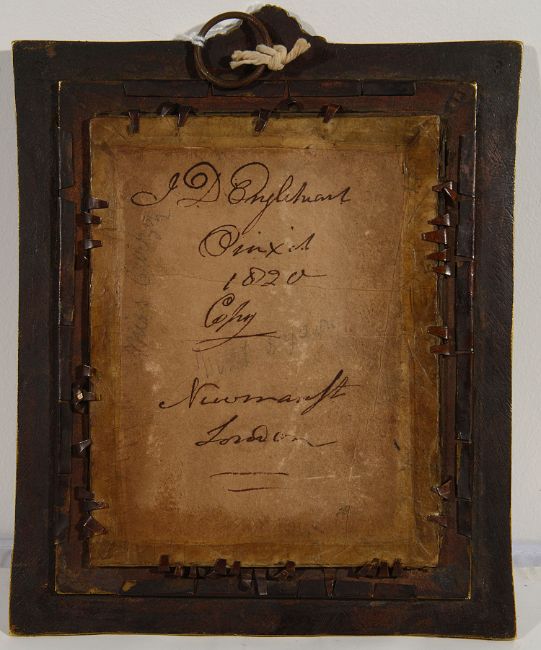 J D Engleheart
Pinxit
1820
Copy
Newman St
London
29